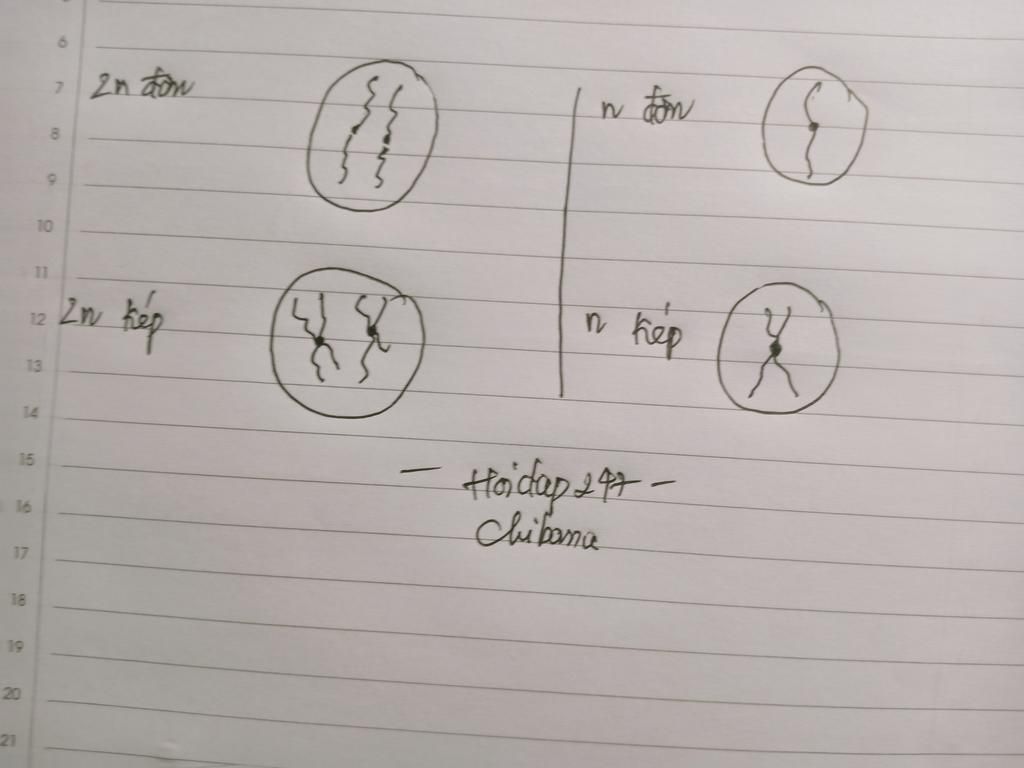 6
7
8
9
10
11
12
13
14
15
16
17
18
19
20
21
2n đơn
n đơn
2n kép
n kép
— Hỏidap 247 —
Chibana